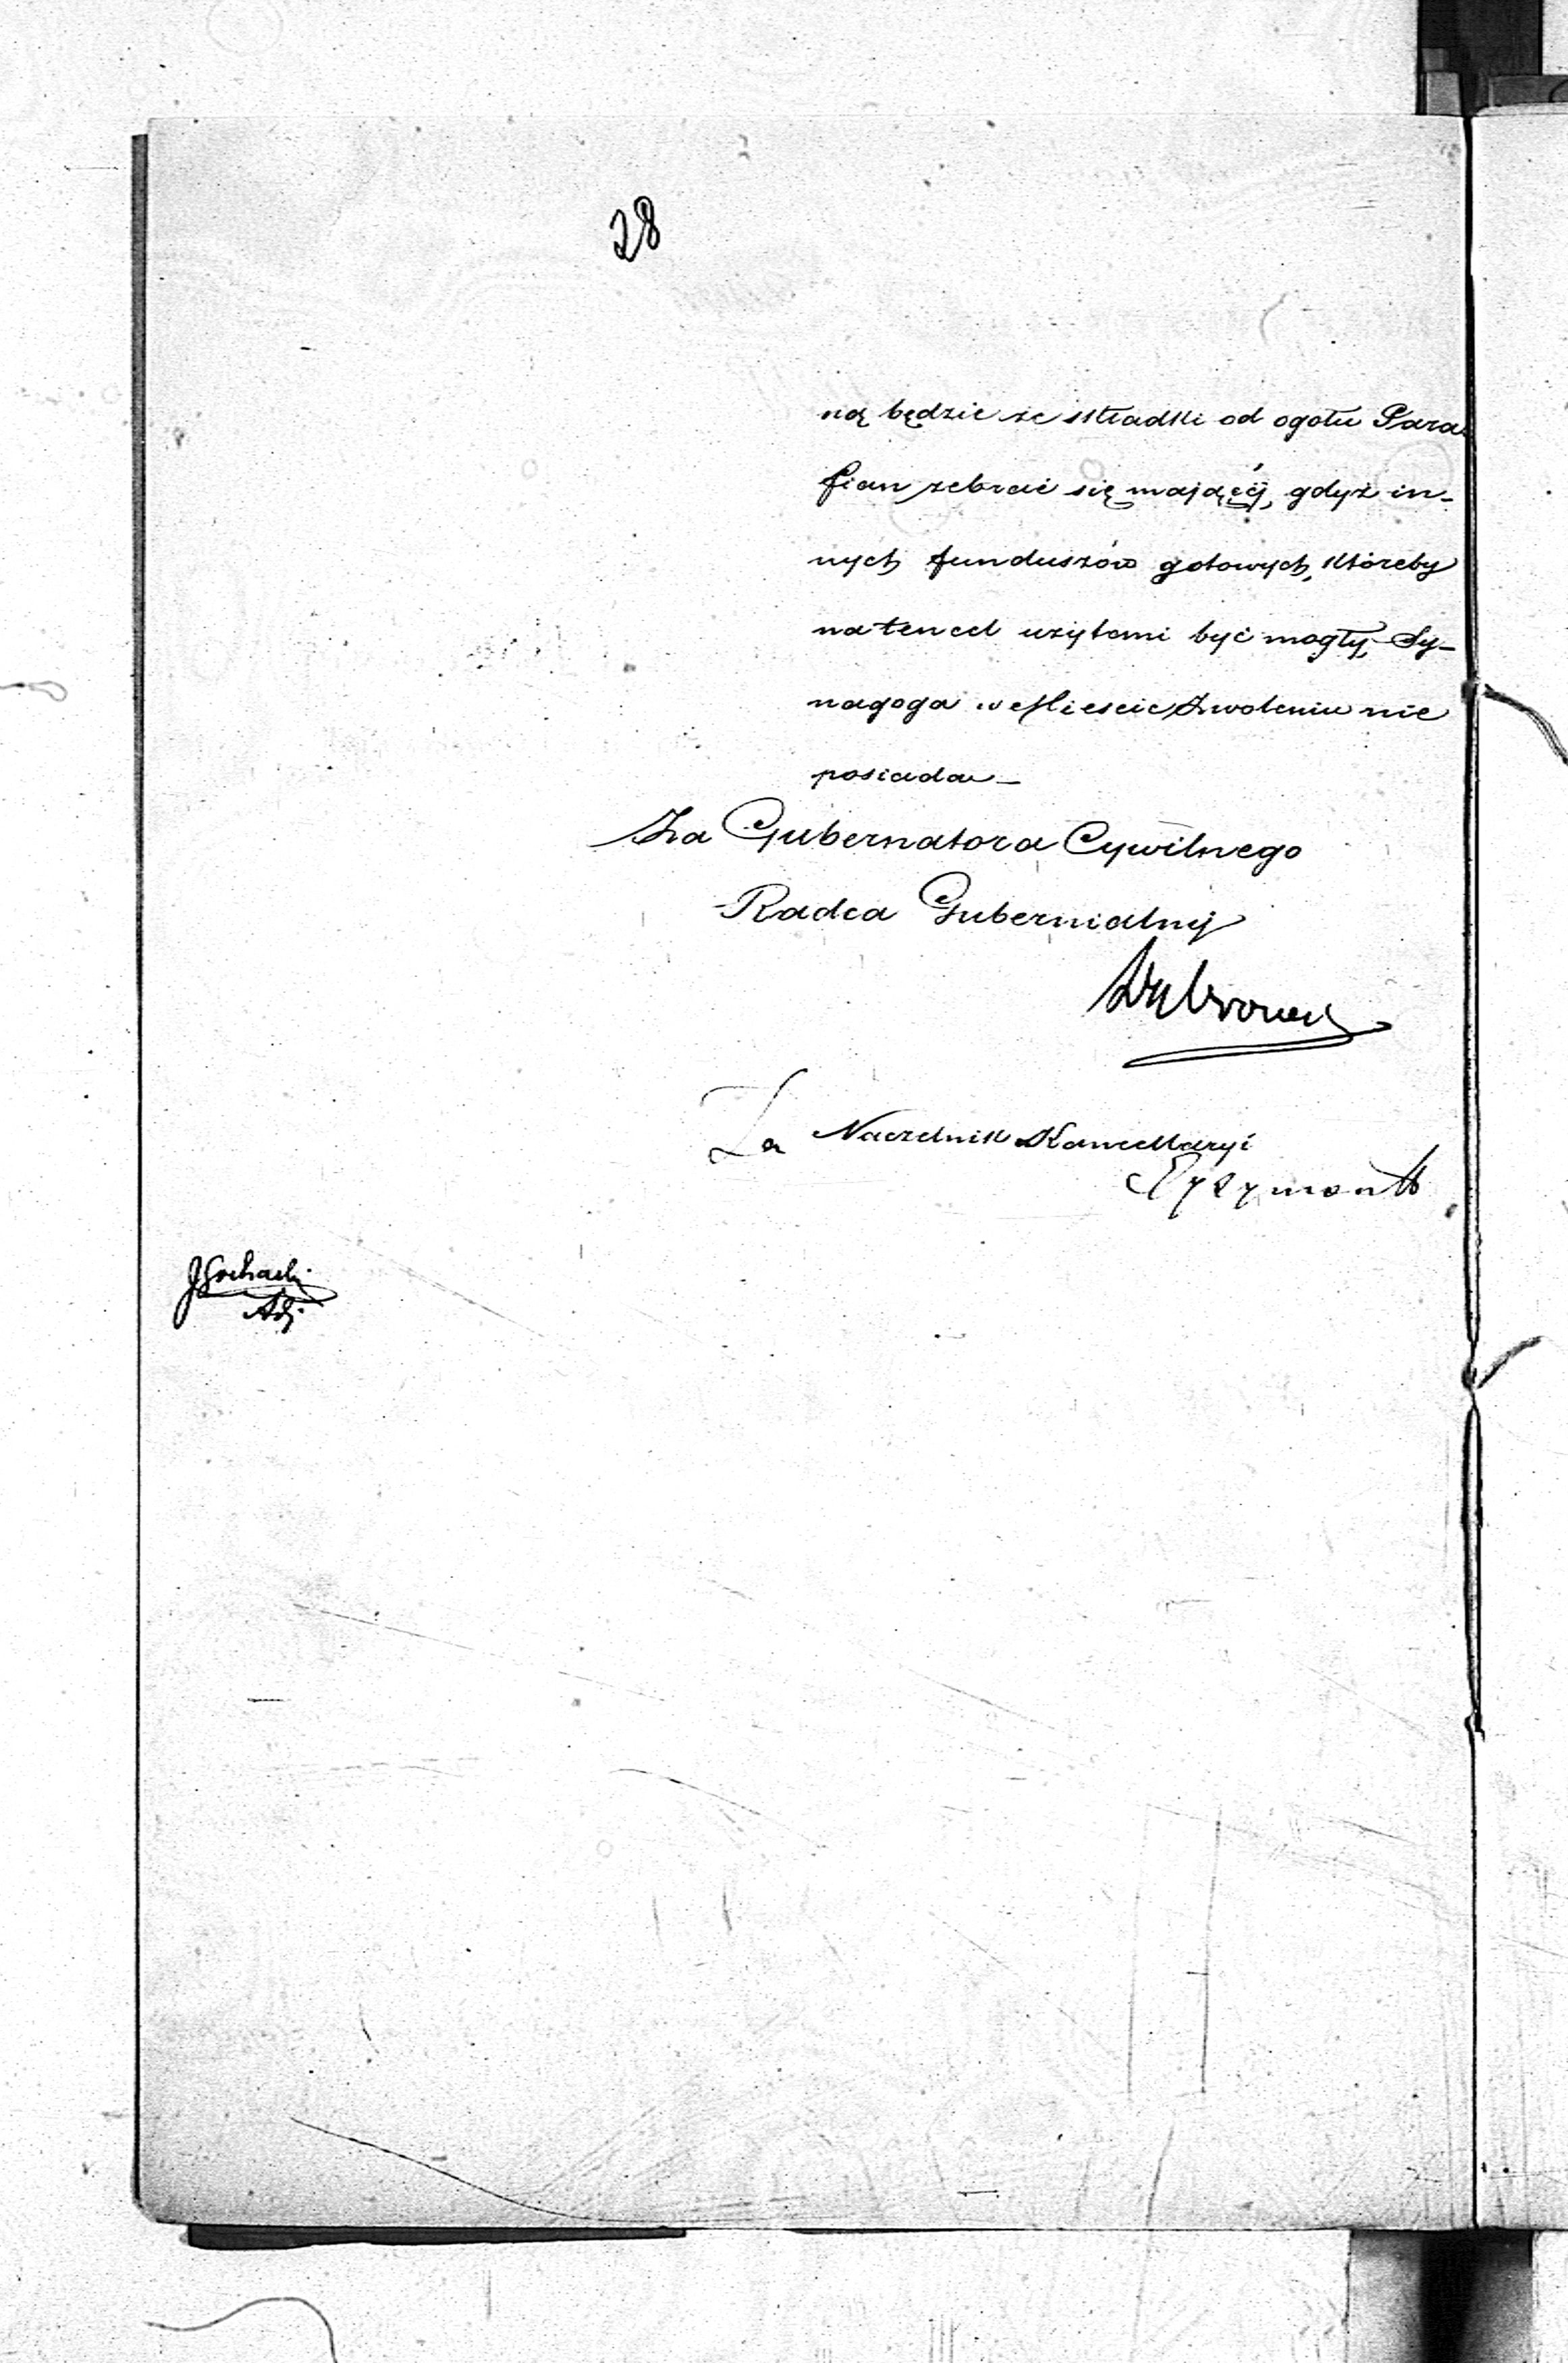 28
ną będzie ze składki od ogołu Para-
fian zebrać się mającéj, gdyż in-
nych funduszów gotowych, któreby
na ten cel użytemi być mogły, Sy-
nagoga w Mieście Zwoleniu nie
posiada _
Za Gubernatora Cywilnego
Radca Gubernialny
Za Naczelnik Kancellaryi